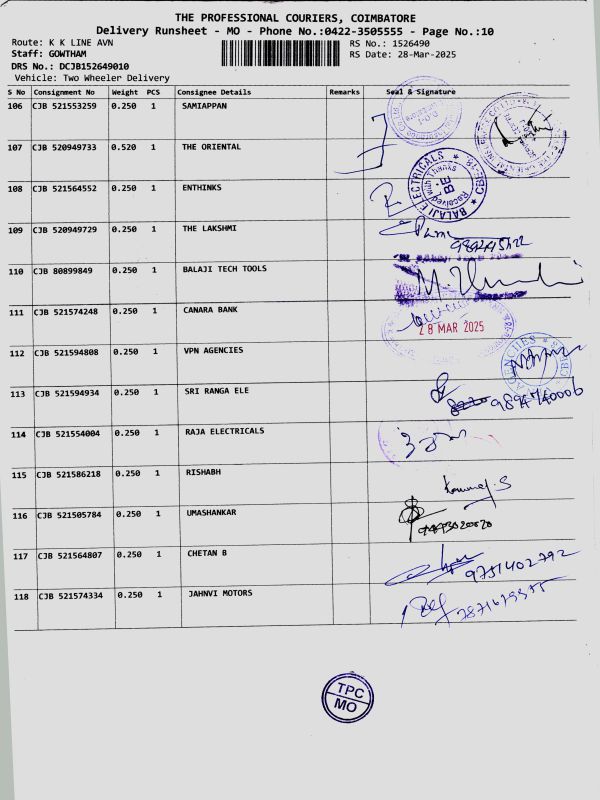 THE PROFESSIONAL COURIERS, COIMBATORE
Delivery Runsheet - MO - Phone No.:0422-3505555 - Page No.:10
Route: K K LINE AVN
RS No.: 1526490
Staff: GOWTHAM
RS Date: 28-Mar-2025
DRS No.: DCJB152649010
Vehicle: Two Wheeler Delivery
S No Consignment No Weight PCS Consignee Details Remarks Seal & Signature
106 CJB 521553259 0.250 1 SAMIAPPAN
107 CJB 520949733 0.520 1 THE ORIENTAL
108 CJB 521564552 0.250 1 ENTHINKS
BALAJI ELECTRICALS ★ CBE-18 ★
Received with Thanks
B.E
109 CJB 520949729 0.250 1 THE LAKSHMI
110 CJB 80899849 0.250 1 BALAJI TECH TOOLS
111 CJB 521574248 0.250 1 CANARA BANK
28 MAR 2025
112 CJB 521594808 0.250 1 VPN AGENCIES
AGENCIES
113 CJB 521594934 0.250 1 SRI RANGA ELE
114 CJB 521554004 0.250 1 RAJA ELECTRICALS
115 CJB 521586218 0.250 1 RISHABH
116 CJB 521505784 0.250 1 UMASHANKAR
117 CJB 521564807 0.250 1 CHETAN B
9751402792
118 CJB 521574334 0.250 1 JAHNVI MOTORS
TPC
MO